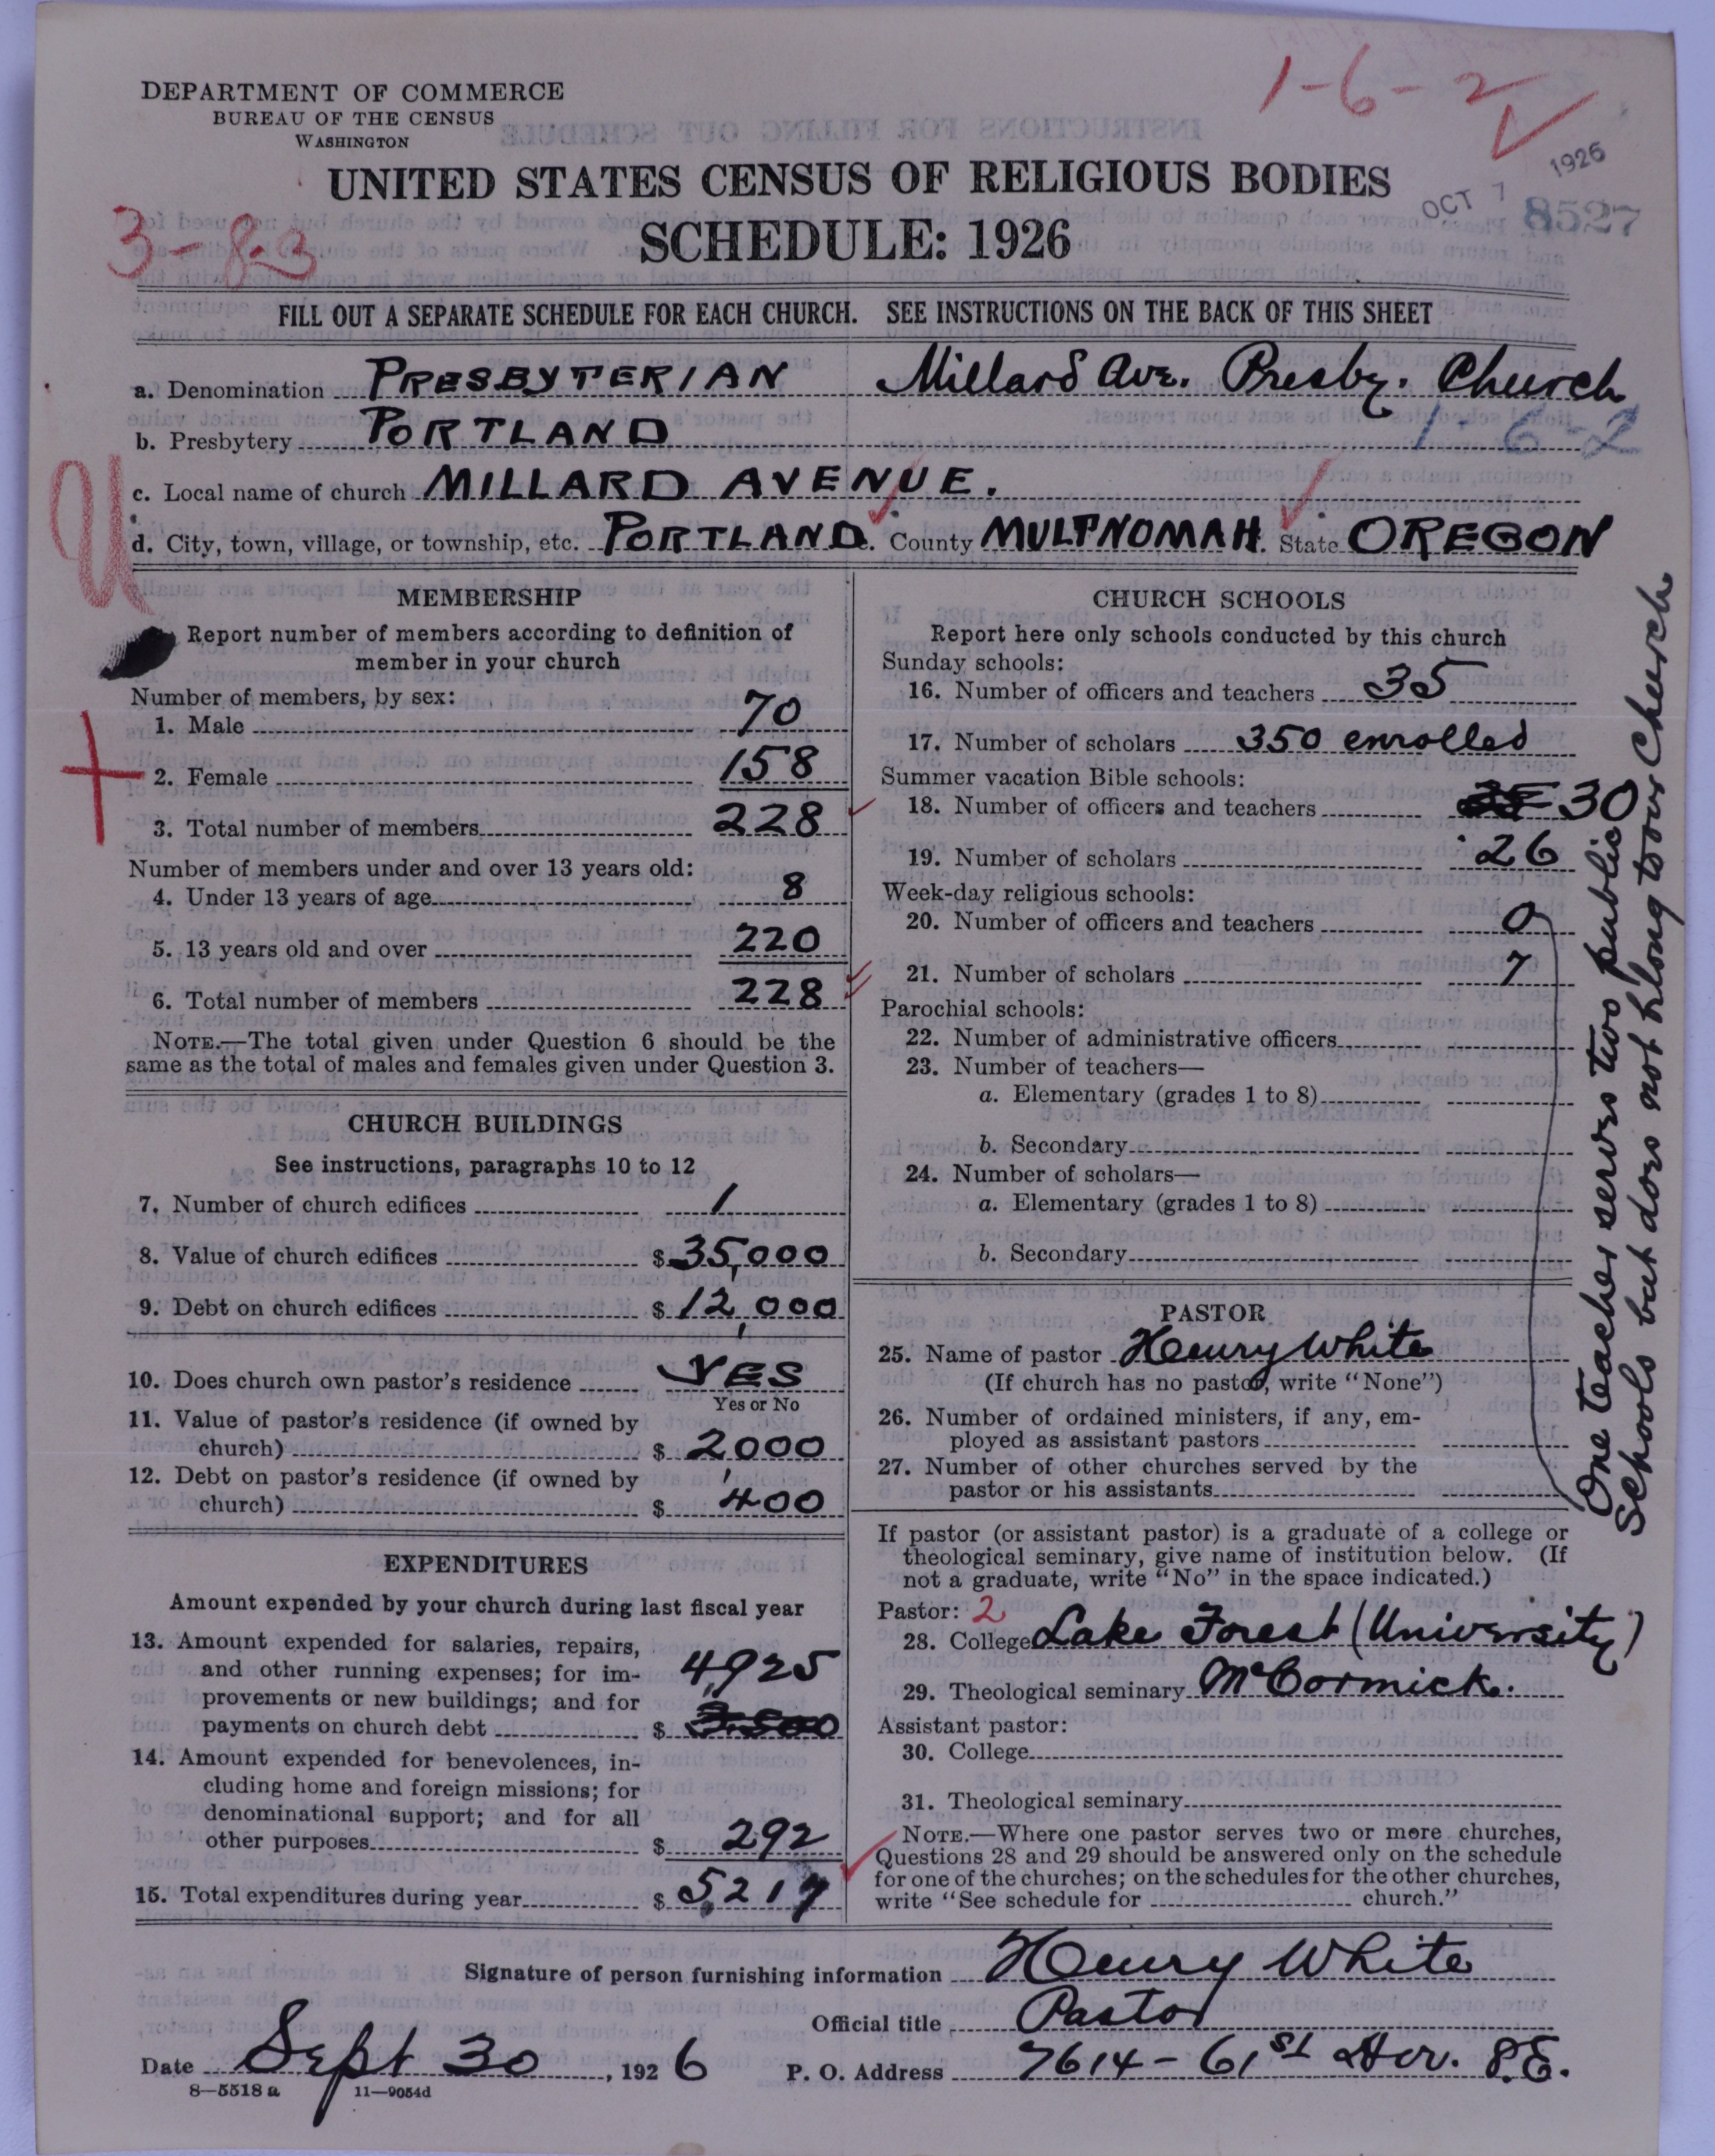 1-6-2
DEPARTMENT OF COMMERCE
BUREAU OF THE CENSUS
WASHINGTON
UNITED STATES CENSUS OF RELIGIOUS BODIES
SCHEDULE: 1926
OCT 7 1926
8527
3-8-3
FILL OUT A SEPARATE SCHEDULE FOR EACH CHURCH. SEE INSTRUCTIONS ON THE BACK OF THIS SHEET
a. Denomination PRESBYTERIAN Millard Ave. Presby. Church
b. Presbytery PORTLAND 1-6-2
c. Local name of church MILLARD AVENUE.
d. City, town, village, or township, etc. PORTLAND. County MULTNOMAH. State OREGON
U
MEMBERSHIP
Report number of members according to definition of
member in your church
Number of members, by sex:
1. Male 70
2. Female 158
3. Total number of members 228
Number of members under and over 13 years old:
4. Under 13 years of age 8
5. 13 years old and over 220
6. Total number of members 228
NOTE.—The total given under Question 6 should be the
same as the total of males and females given under Question 3.
CHURCH BUILDINGS
See instructions, paragraphs 10 to 12
7. Number of church edifices 1
8. Value of church edifices $ 35,000
9. Debt on church edifices $ 12,000
10. Does church own pastor's residence YES
Yes or No
11. Value of pastor's residence (if owned by
church) $ 2000
12. Debt on pastor's residence (if owned by
church) $ 400
EXPENDITURES
Amount expended by your church during last fiscal year
13. Amount expended for salaries, repairs,
and other running expenses; for im-
provements or new buildings; and for
payments on church debt $ 4,925
14. Amount expended for benevolences, in-
cluding home and foreign missions; for
denominational support; and for all
other purposes $ 292
15. Total expenditures during year $ 5,217
CHURCH SCHOOLS
Report here only schools conducted by this church
Sunday schools:
16. Number of officers and teachers 35
17. Number of scholars 350 enrolled
Summer vacation Bible schools:
18. Number of officers and teachers 30
19. Number of scholars 26
Week-day religious schools:
20. Number of officers and teachers 0
21. Number of scholars 7
Parochial schools:
22. Number of administrative officers
23. Number of teachers—
a. Elementary (grades 1 to 8)
b. Secondary
24. Number of scholars—
a. Elementary (grades 1 to 8)
b. Secondary
One teacher serves two public
Schools but does not belong to our Church
PASTOR
25. Name of pastor Henry White
(If church has no pastor, write "None")
26. Number of ordained ministers, if any, em-
ployed as assistant pastors
27. Number of other churches served by the
pastor or his assistants
If pastor (or assistant pastor) is a graduate of a college or
theological seminary, give name of institution below. (If
not a graduate, write "No" in the space indicated.)
Pastor: 2
28. College Lake Forest (University)
29. Theological seminary McCormick.
Assistant pastor:
30. College
31. Theological seminary
NOTE.—Where one pastor serves two or more churches,
Questions 28 and 29 should be answered only on the schedule
for one of the churches; on the schedules for the other churches,
write "See schedule for church."
Signature of person furnishing information Henry White
Official title Pastor
Date Sept 30, 1926 P. O. Address 7614-61st Ave. S.E.
8—5518 a 11—9054d